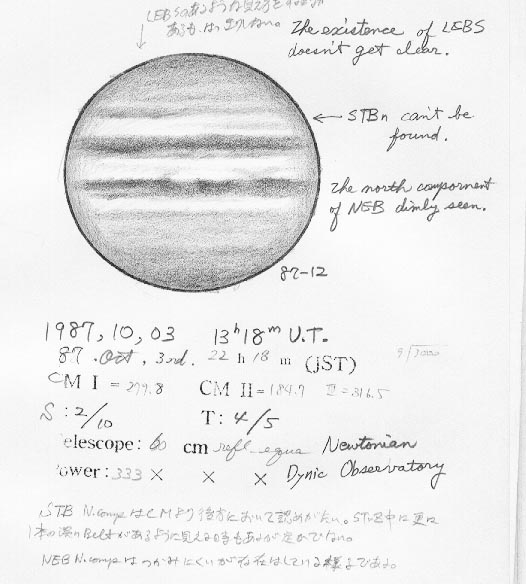 LEBSのあるような見え方を
あるも、はっきりしない。
The existence of LEBS
doesn't get clear.
← STBn can't be
found.
The north compornent
of NEB dimly seen.
87-12
1987, 10, 03 13h 18m U.T.
87. Oct, 3rd. 22 h 18 m (JST)
9√3000
CM I = 279.8 CM II = 184.9 III = 316.5
S : 2/10 T : 4/5
elescope : 60 cm refl. equa Newtonian
ower : 333 × × × Dynic Observatory
STB N.comp はCMより後方において認めがたい。STrZ中に更に
1本の淡いBeltがあるように見える時もあるが定かでない。
NEB N.comp はつかみにくいが存在はしている様である。